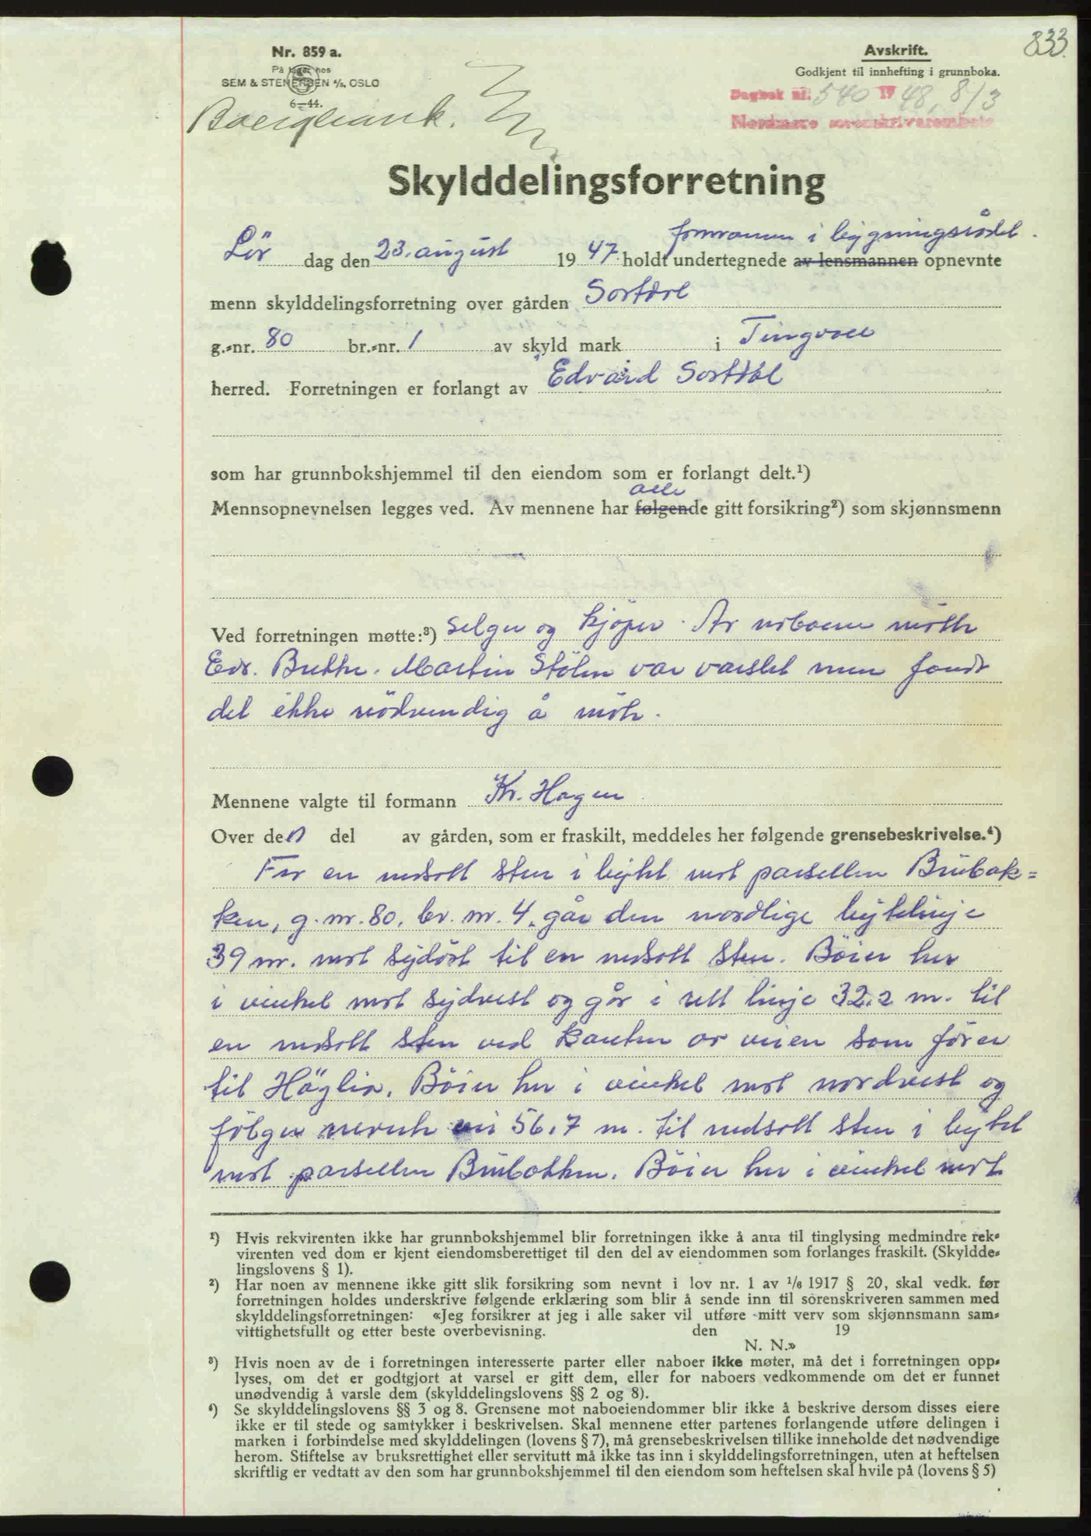 833.
Nr. 859 a.
På lager hos
SEM & STENERSEN A/S, OSLO
6–44.
Avskrift.
Godkjent til innhefting i grunnboka.
Dagbok nr. 540 1948, 8/3
Nordmøre sorenskriverembete
Skylddelingsforretning
formannen i bygningsrådet.
Lør dag den 23. august 1947 holdt undertegnede av lensmannen opnevnte
menn skylddelingsforretning over gården Sortdal
g.-nr. 80 br.-nr. 1 av skyld mark i Tingvoll
herred. Forretningen er forlangt av Edvard Sortdal
som har grunnbokshjemmel til den eiendom som er forlangt delt.¹)
alle
Mennsopnevnelsen legges ved. Av mennene har følgende gitt forsikring²) som skjønnsmenn
Ved forretningen møtte:³) Selger og kjøper. Av naboene møtte
Edv. Martin Stølen var varslet men fandt
det ikke nødvendig å møte.
Mennene valgte til formann Kr. Hagen
Over den del av gården, som er fraskilt, meddeles her følgende grensebeskrivelse.⁴)
Fra en nedsatt sten i bytet mot parsellen Brubak=
ken, g. nr. 80, br. nr. 4, går den nordlige bytelinje
39 m. mot sydøst til en nedsatt sten. Bøier her
i vinkel mot sydvest og går i rett linje 32,2 m. til
en nedsatt sten ved kanten av veien som fører
til Høglia. Bøier her i vinkel mot nordvest og
følger nevnte vei 56,7 m. til nedsatt sten i bytet
mot parsellen Brubakken. Bøier her i vinkel mot
¹) Hvis rekvirenten ikke har grunnbokshjemmel blir forretningen ikke å anta til tinglysing medmindre rek-
virenten ved dom er kjent eiendomsberettiget til den del av eiendommen som forlanges fraskilt. (Skyldde-
lingslovens § 1).
²) Har noen av mennene ikke gitt slik forsikring som nevnt i lov nr. 1 av 1/6 1917 § 20, skal vedk. før
forretningen holdes underskrive følgende erklæring som blir å sende inn til sorenskriveren sammen med
skylddelingsforretningen: «Jeg forsikrer at jeg i alle saker vil utføre mitt verv som skjønnsmann sam-
vittighetsfullt og etter beste overbevisning. den 19
N. N.»
³) Hvis noen av de i forretningen interesserte parter eller naboer ikke møter, må det i forretningen opp-
lyses, om det er godtgjort at varsel er gitt dem, eller for naboers vedkommende om det er funnet
unødvendig å varsle dem (skylddelingslovens §§ 2 og 8).
⁴) Se skylddelingslovens §§ 3 og 8. Grensene mot naboeiendommer blir ikke å beskrive dersom disses eiere
ikke er til stede og samtykker i beskrivelsen. Skal mennene etter partenes forlangende utføre delingen i
marken i forbindelse med skylddelingen (lovens § 7), må grensebeskrivelsen tillike inneholde det nødvendige
herom. Stiftelse av bruksrettighet eller servitutt må ikke tas inn i skylddelingsforretningen, uten at heftelsen
skriftlig er vedtatt av den som har grunnbokshjemmel til den eiendom som heftelsen skal hvile på (lovens § 5)